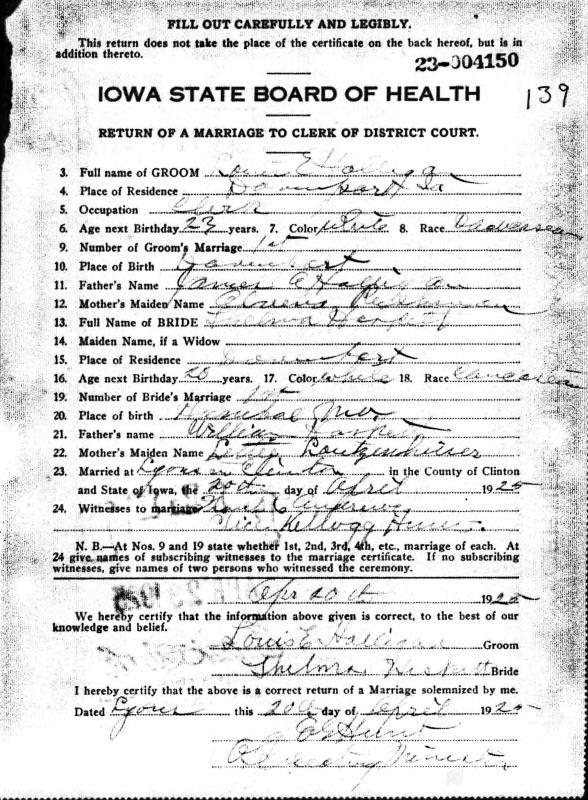 FILL OUT CAREFULLY AND LEGIBLY.
This return does not take the place of the certificate on the back hereof, but is in
addition thereto.
23-004150
IOWA STATE BOARD OF HEALTH
139
RETURN OF A MARRIAGE TO CLERK OF DISTRICT COURT.
3. Full name of GROOM Louis E Halligan
4. Place of Residence Davenport Ia
5. Occupation Clerk
6. Age next Birthday 23 years. 7. Color white 8. Race Caucasian
9. Number of Groom's Marriage 1st
10. Place of Birth Davenport
11. Father's Name James Halligan
12. Mother's Maiden Name
13. Full Name of BRIDE Thelma
14. Maiden Name, if a Widow
15. Place of Residence Davenport
16. Age next Birthday 20 years. 17. Color white 18. Race Caucasian
19. Number of Bride's Marriage 1st
20. Place of birth Hannibal Mo.
21. Father's name William
22. Mother's Maiden Name Loutzenhiser
23. Married at Lyons Clinton in the County of Clinton
and State of Iowa, the 20th day of April 1925
24. Witnesses to marriage
Kellogg Hunt.
N. B.—At Nos. 9 and 19 state whether 1st, 2nd, 3rd, 4th, etc., marriage of each. At
24 give names of subscribing witnesses to the marriage certificate. If no subscribing
witnesses, give names of two persons who witnessed the ceremony.
Apr 20th 1925
We hereby certify that the information above given is correct, to the best of our
knowledge and belief.
Louis E Halligan Groom
Thelma Bride
I hereby certify that the above is a correct return of a Marriage solemnized by me.
Dated Lyons this 20th day of April 1925
Hunt